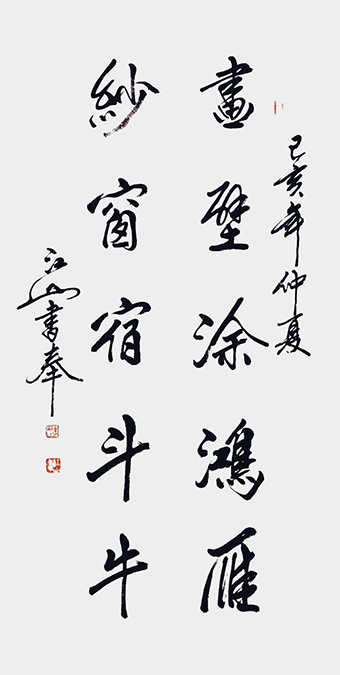 己亥年仲夏
畫壁涂鴻雁
紗窗宿斗牛
江山書奉